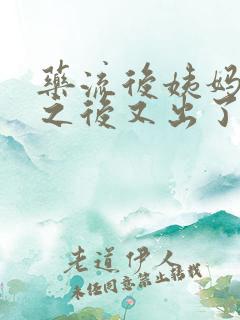 藥流後姨媽
之後又出了
老道伊人
未经同意禁止转载